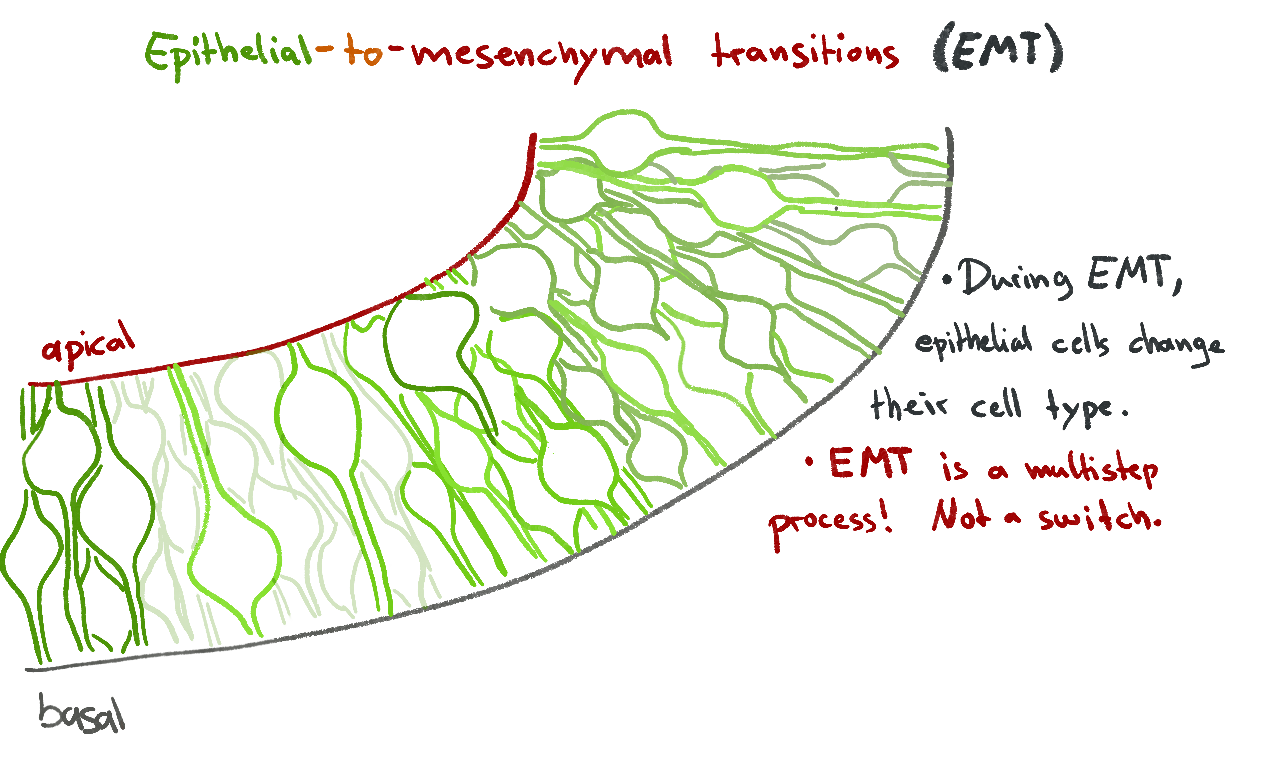 Epithelial-to-mesenchymal transitions (EMT)
apical
• During EMT,
epithelial cells change
their cell type.
• EMT is a multistep
process! Not a switch.
basal